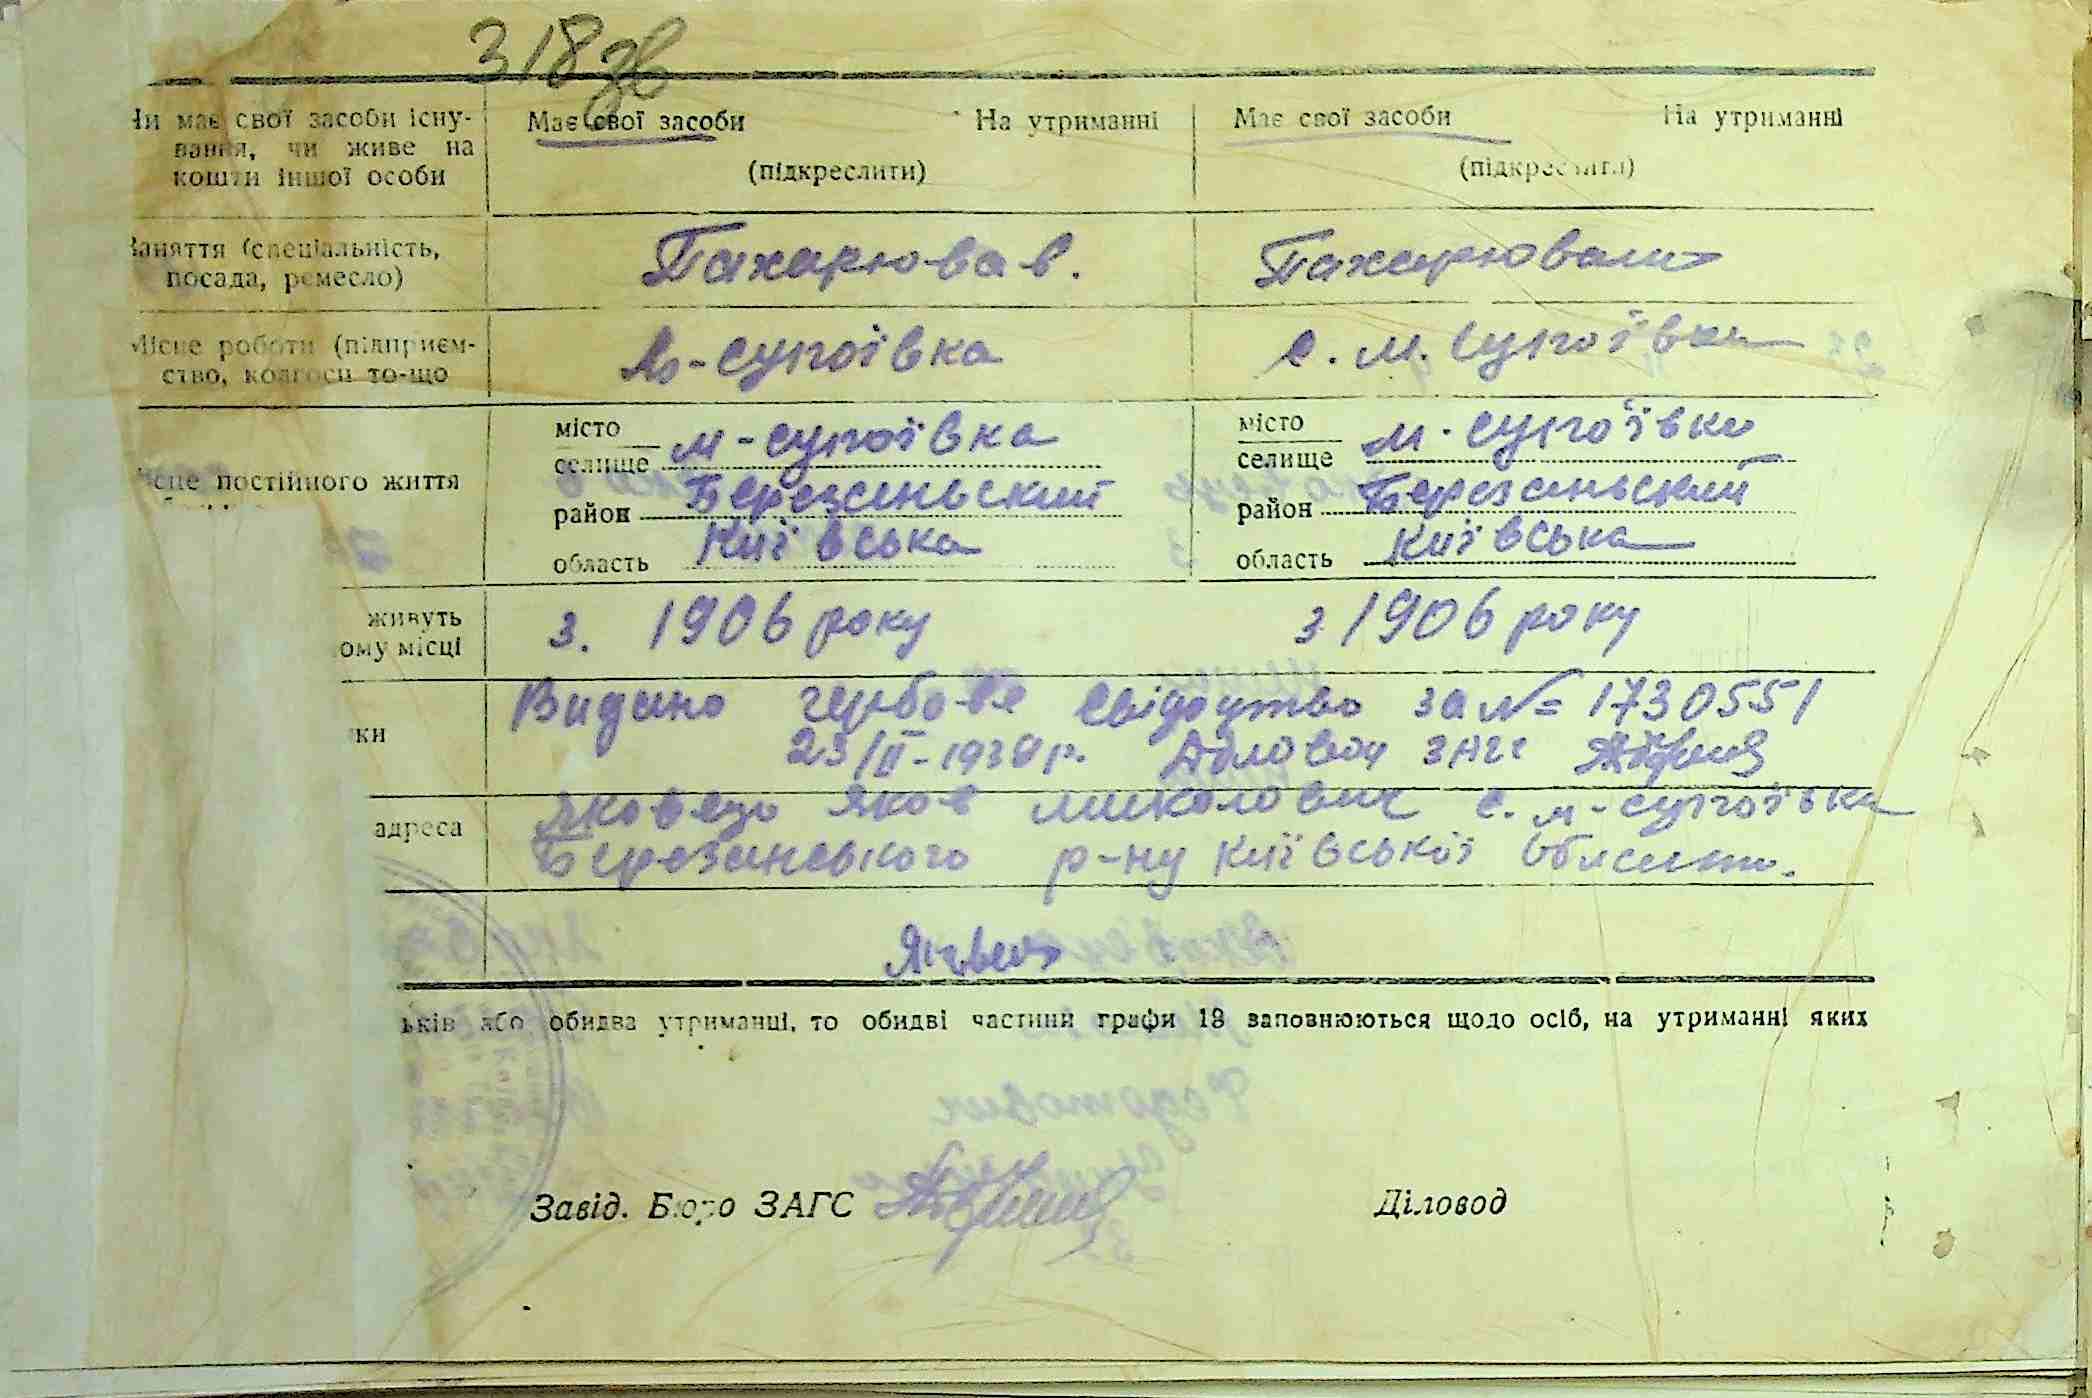 318зв
Чи має свої засоби існу-
вання, чи живе на
кошти іншої особи
Має свої засоби На утриманні
(підкреслити)
Має свої засоби На утриманні
(підкреслити)
Заняття (спеціальність,
посада, ремесло)
Пахарював.
Пахарювали
Місце роботи (підприєм-
ство, колгосп то-що
М-Супоївка
с. М. Супоївка
Місце постійного життя
місто
селище М-Супоївка
район Березаньский
область Київська
місто
селище М-Супоївка
район Березаньский
область Київська
живуть
ому місці
з. 1906 року
з 1906 року
ки
Видано гербове Свідоцтво за № 1730551
23/II-1939 р. Діловод ЗАГС
адреса
Яковець Яков Миколович с. М-Супоївка
Березанського р-ну Київської Области.
ьків або обидва утриманці, то обидві частини графи 18 заповнюються щодо осіб, на утриманні яких
Завід. Бюро ЗАГС
Діловод